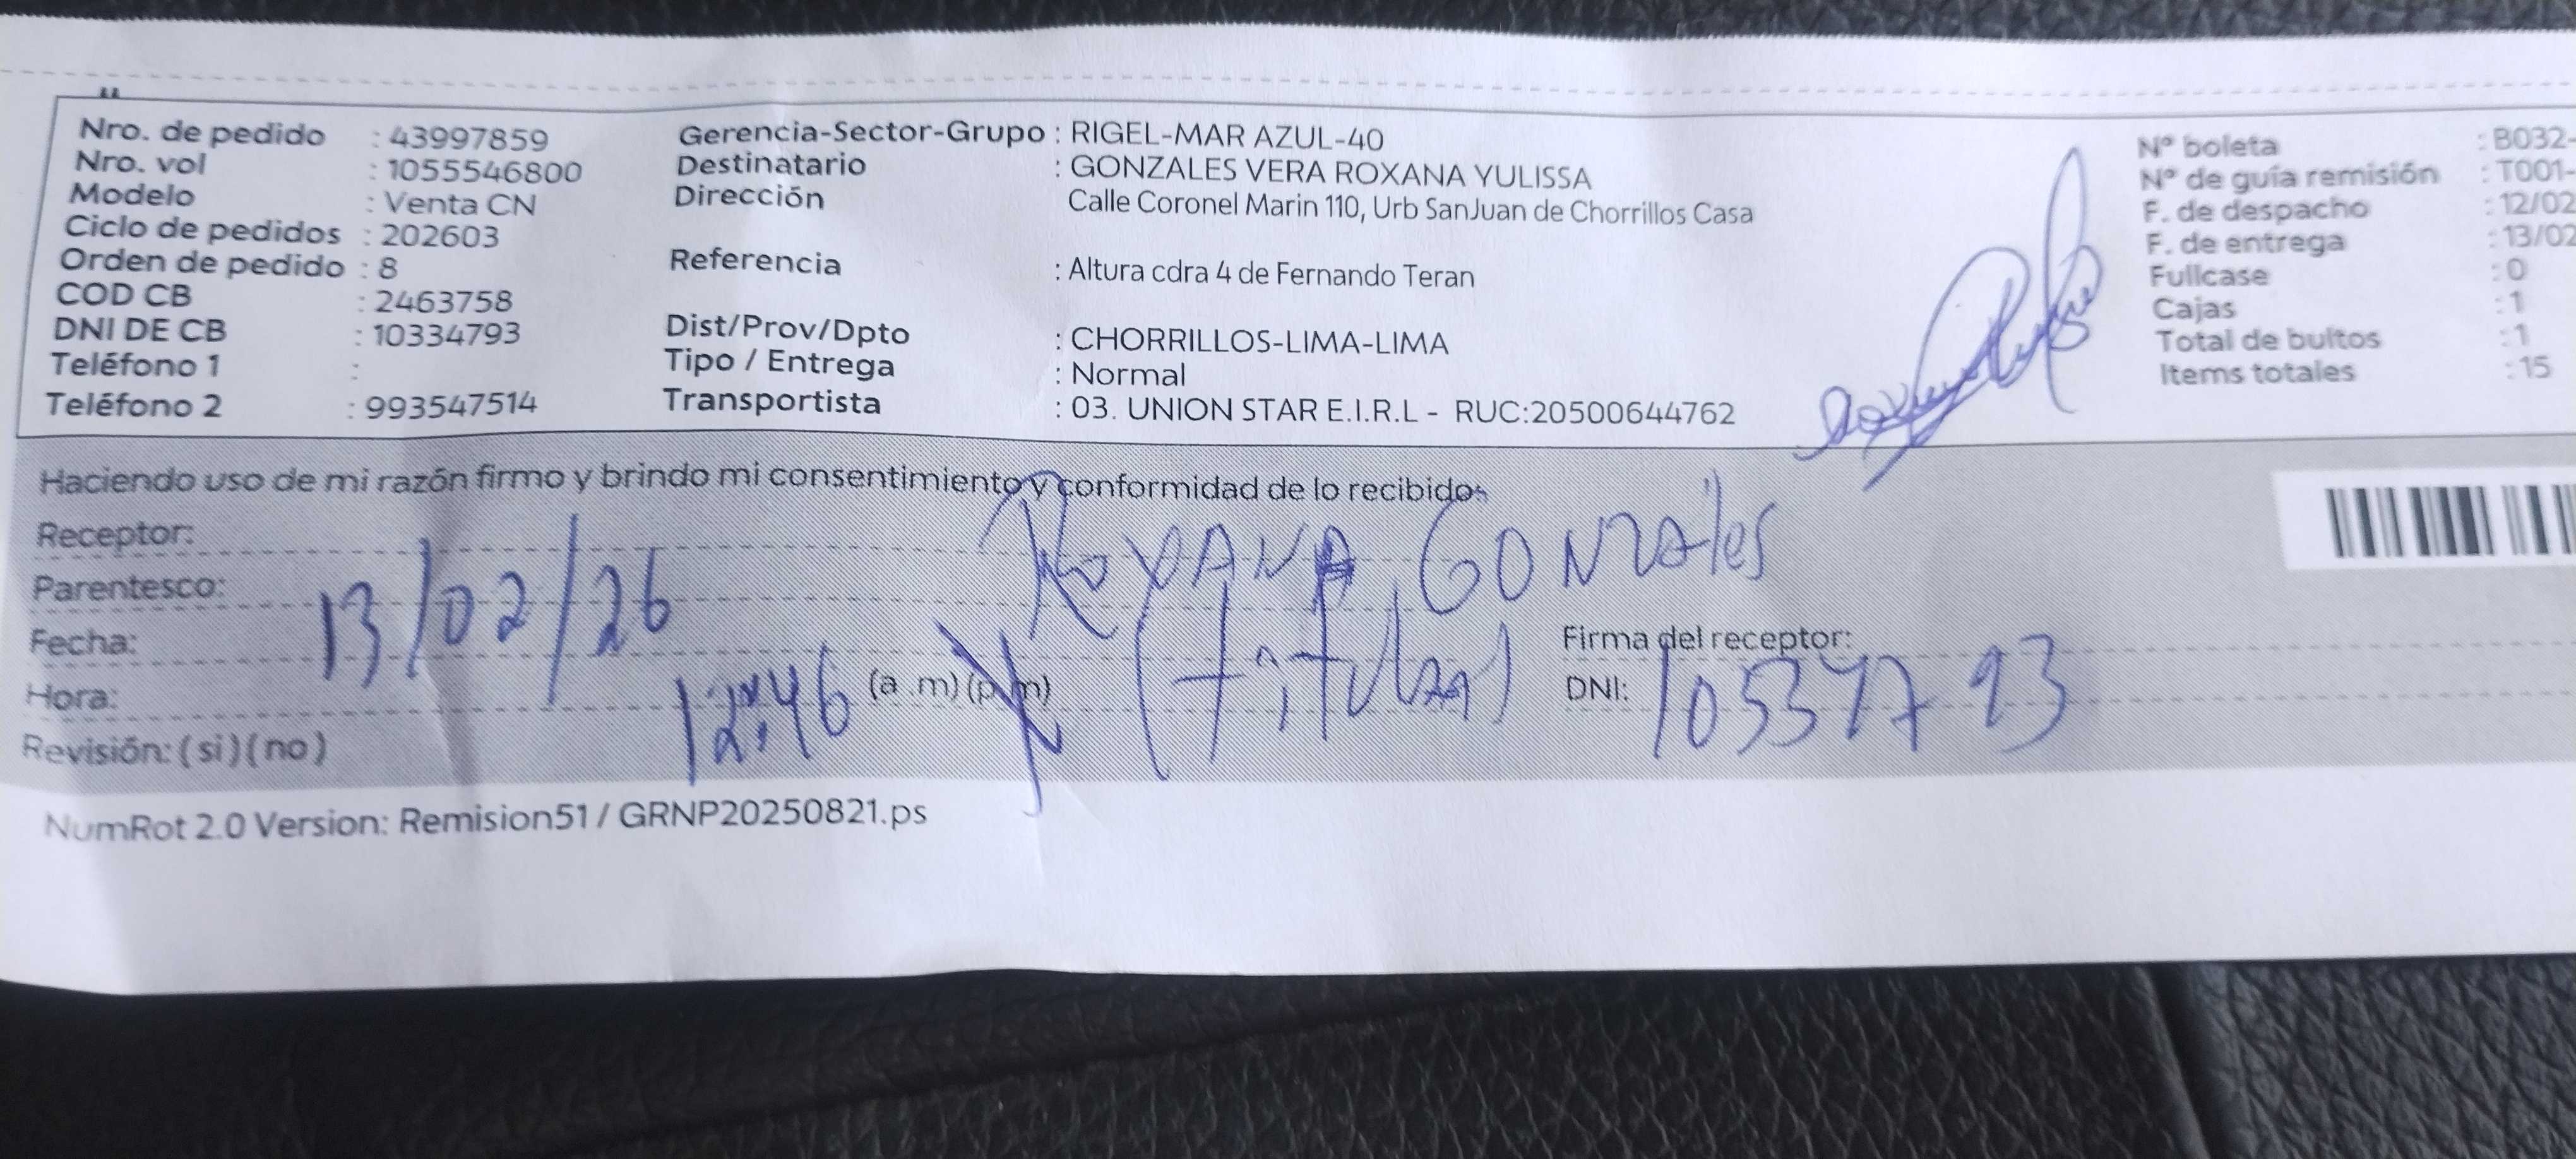 Nro. de pedido : 43997859
Nro. vol : 1055546800
Modelo : Venta CN
Ciclo de pedidos : 202603
Orden de pedido : 8
COD CB : 2463758
DNI DE CB : 10334793
Teléfono 1 :
Teléfono 2 : 993547514
Gerencia-Sector-Grupo : RIGEL-MAR AZUL-40
Destinatario : GONZALES VERA ROXANA YULISSA
Dirección Calle Coronel Marin 110, Urb SanJuan de Chorrillos Casa
Referencia : Altura cdra 4 de Fernando Teran
Dist/Prov/Dpto : CHORRILLOS-LIMA-LIMA
Tipo / Entrega : Normal
Transportista : 03. UNION STAR E.I.R.L - RUC:20500644762
Nº boleta : B032-
Nº de guía remisión : T001-
F. de despacho : 12/02
F. de entrega : 13/02
Fullcase : 0
Cajas : 1
Total de bultos : 1
Items totales : 15
Haciendo uso de mi razón firmo y brindo mi consentimiento y conformidad de lo recibido.
Receptor: ROXANA GONZales
Parentesco: (titular)
Fecha: 13/02/26
Hora: 12:46 (a .m) (p.m)
Firma del receptor:
DNI:
Revisión: ( si ) ( no )
NumRot 2.0 Version: Remision51 / GRNP20250821.ps